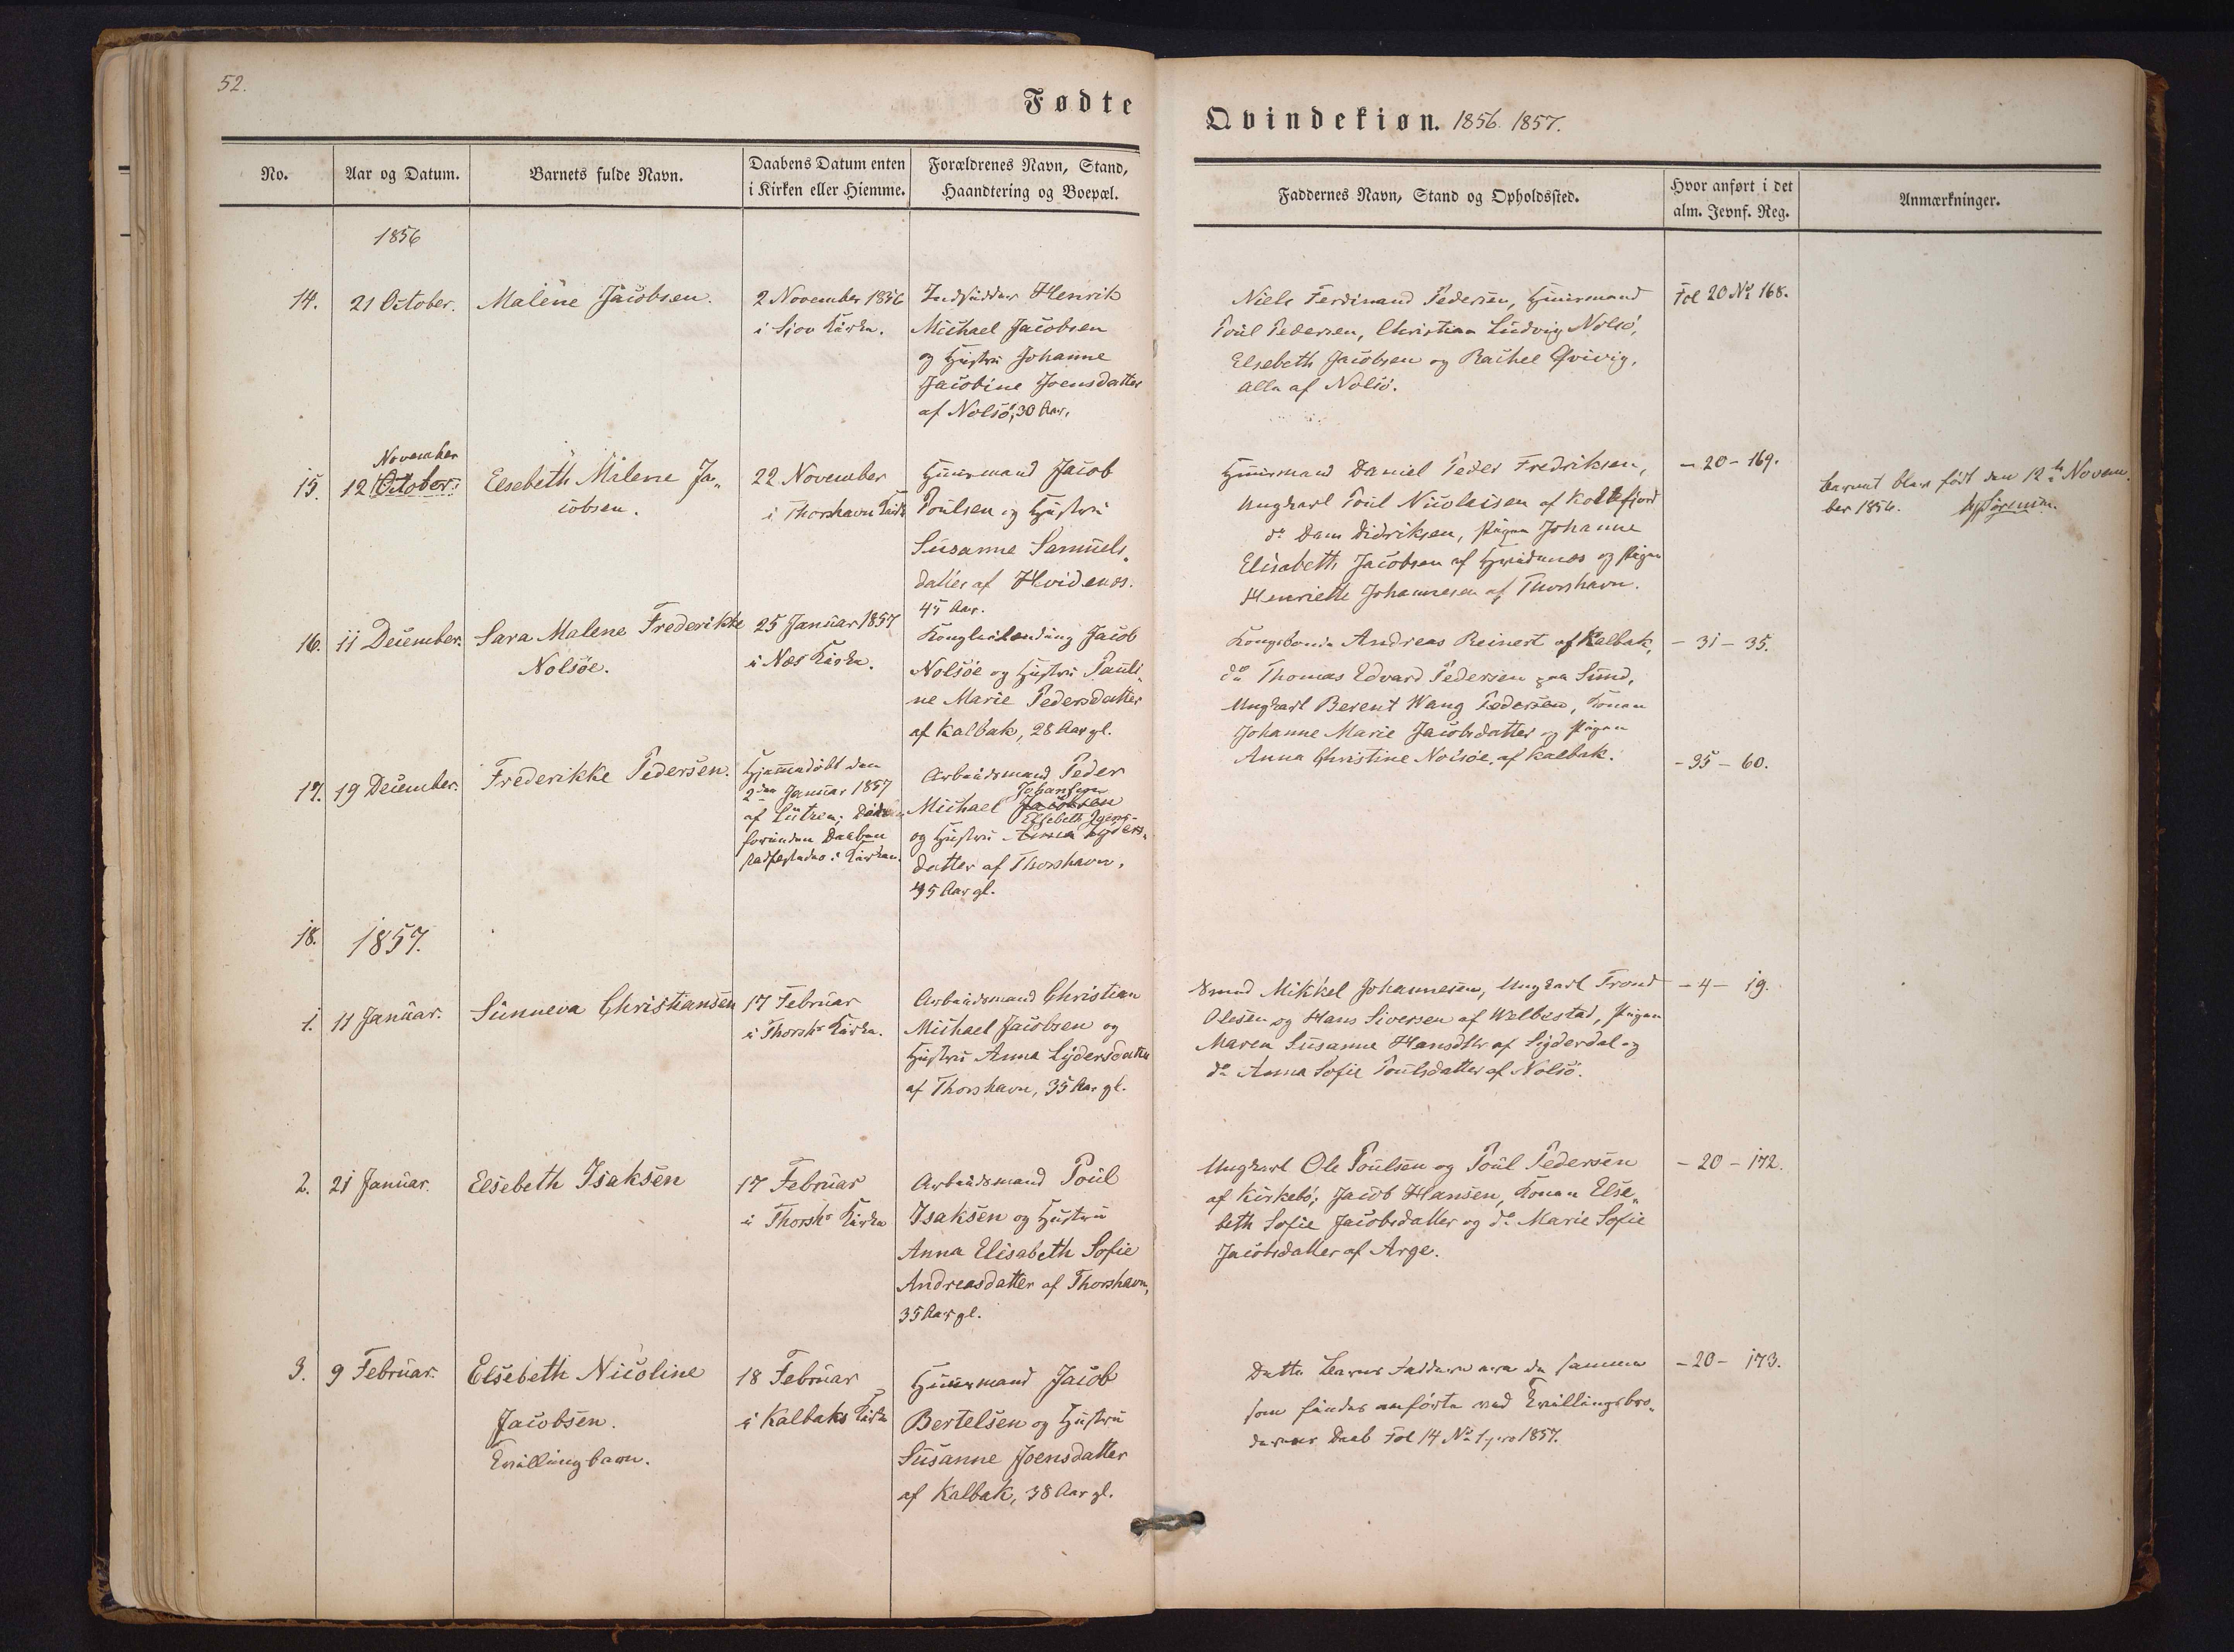 52.
Fødte
Qvindekiøn. 1856. 1857.
No.
Aar og Datum.
Barnets fulde Navn.
Daabens Datum enten
i Kirken eller Hiemme.
Forældrenes Navn, Stand,
Haandtering og Boepæl.
Faddernes Navn, Stand og Opholdssted.
Hvor anført i det
alm. Jevnf. Reg.
Anmærkninger.
1856
14.
21 October.
Malene Jacobsen.
2 November 1856
i Kirke.
Indsidder Henrik
Michael Jacobsen
og Hustru Johanne
Jacobine Joensdatter
af Nolsö, 30 Aar.
Niels Ferdinand Pedersen, Huusmand
Poul Pedersen, Christian Ludvig Nolsö,
Elsebeth Jacobsen og Rachel Qvivig,
alle af Nolsö.
Fol 20 No 168.
15.
November
12 October.
Elsebeth Milene Ja„
cobsen.
22 November
i Thorshavn Kirke
Huusmand Jacob
Poulsen og Hustru
Susanne Samuels„
datter af Hvidenæs.
45 Aar.
Huusmand Daniel Peder Fredriksen,
Ungkarl Poul Nicolaisen af Kolttefjord
do Dam Didriksen, Pigen Johanne
Elisabeth Jacobsen af Hvidenæs og Pigen
Henriette Johannesen af Thorshavn.
- 20 - 169.
barnet blev født den 12te Novem„
ber 1856.
16.
11 December.
Sara Malene Frederikke
Nolsöe.
25 Januar 1857
i Næs Kirke.
Jacob
Nolsöe og Hustru Pauli„
ne Marie Pedersdatter
af Kalbak, 28 Aar gl.
Kongsbonde Andreas Reinert af Kalbak,
do Thomas Edvard Pedersen paa Sund,
Ungkarl Berent Wang Pedersen, Konen
Johanne Marie Jacobsdatter og Pigen
Anna Christine Nolsöe, af Kalbak.
- 31 - 35.
17.
19 December.
Frederikke Pedersen.
Hjemmedöbt den
2den Januar 1857
af Lützen; Döde
forinden Daaben
stadfæstedes i Kirken.
Arbeidsmand Peder
Johansen
Michael Jacobsen
Elsebeth Joens-
og Hustru Anna Lyders„
datter af Thorshavn,
45 Aar gl.
- 35 - 60.
18.
1857.
1.
11 Januar.
Sunneva Christiansen
17 Februar
i Thorshs Kirke.
Arbeidsmand Christian
Michael Jacobsen og
Hustru Anna Lydersdatter
af Thorshavn, 35 Aar gl.
Mikkel Johannesen, Ungkarl Trond
Olesen og Hans Siversen af Welbestad, Pigen
Maren Susanne Hansdtr af Sÿderdal og
do Anna Sofie Poulsdatter af Nolsö.
- 4 - 19.
2.
21 Januar.
Elsebeth Isaksen
17 Februar
i Thorshs Kirke
Arbeidsmand Poul
Isaksen og Hustru
Anna Elisabeth Sofie
Andreasdatter af Thorshavn,
35 Aar gl.
Ungkarl Ole Poulsen og Poul Pedersen
af Kirkebö; Jacob Hansen, Konen Else„
beth Sofie Jacobsdatter og do Marie Sofie
Jacobsdatter af Arge.
- 20 - 172.
3.
9 Februar.
Elsebeth Nicoline
Jacobsen.
Tvillingbarn.
18 Februar
i Kalbaks Kirke
Huusmand Jacob
Bertelsen og Hustru
Susanne Joensdatter
af Kalbak, 38 Aar gl.
Dette Barns Faddere ere de samme
som findes anförte ved Tvillingbro„
derens Daab Fol 14 No 1 pro 1857.
- 20 - 173.